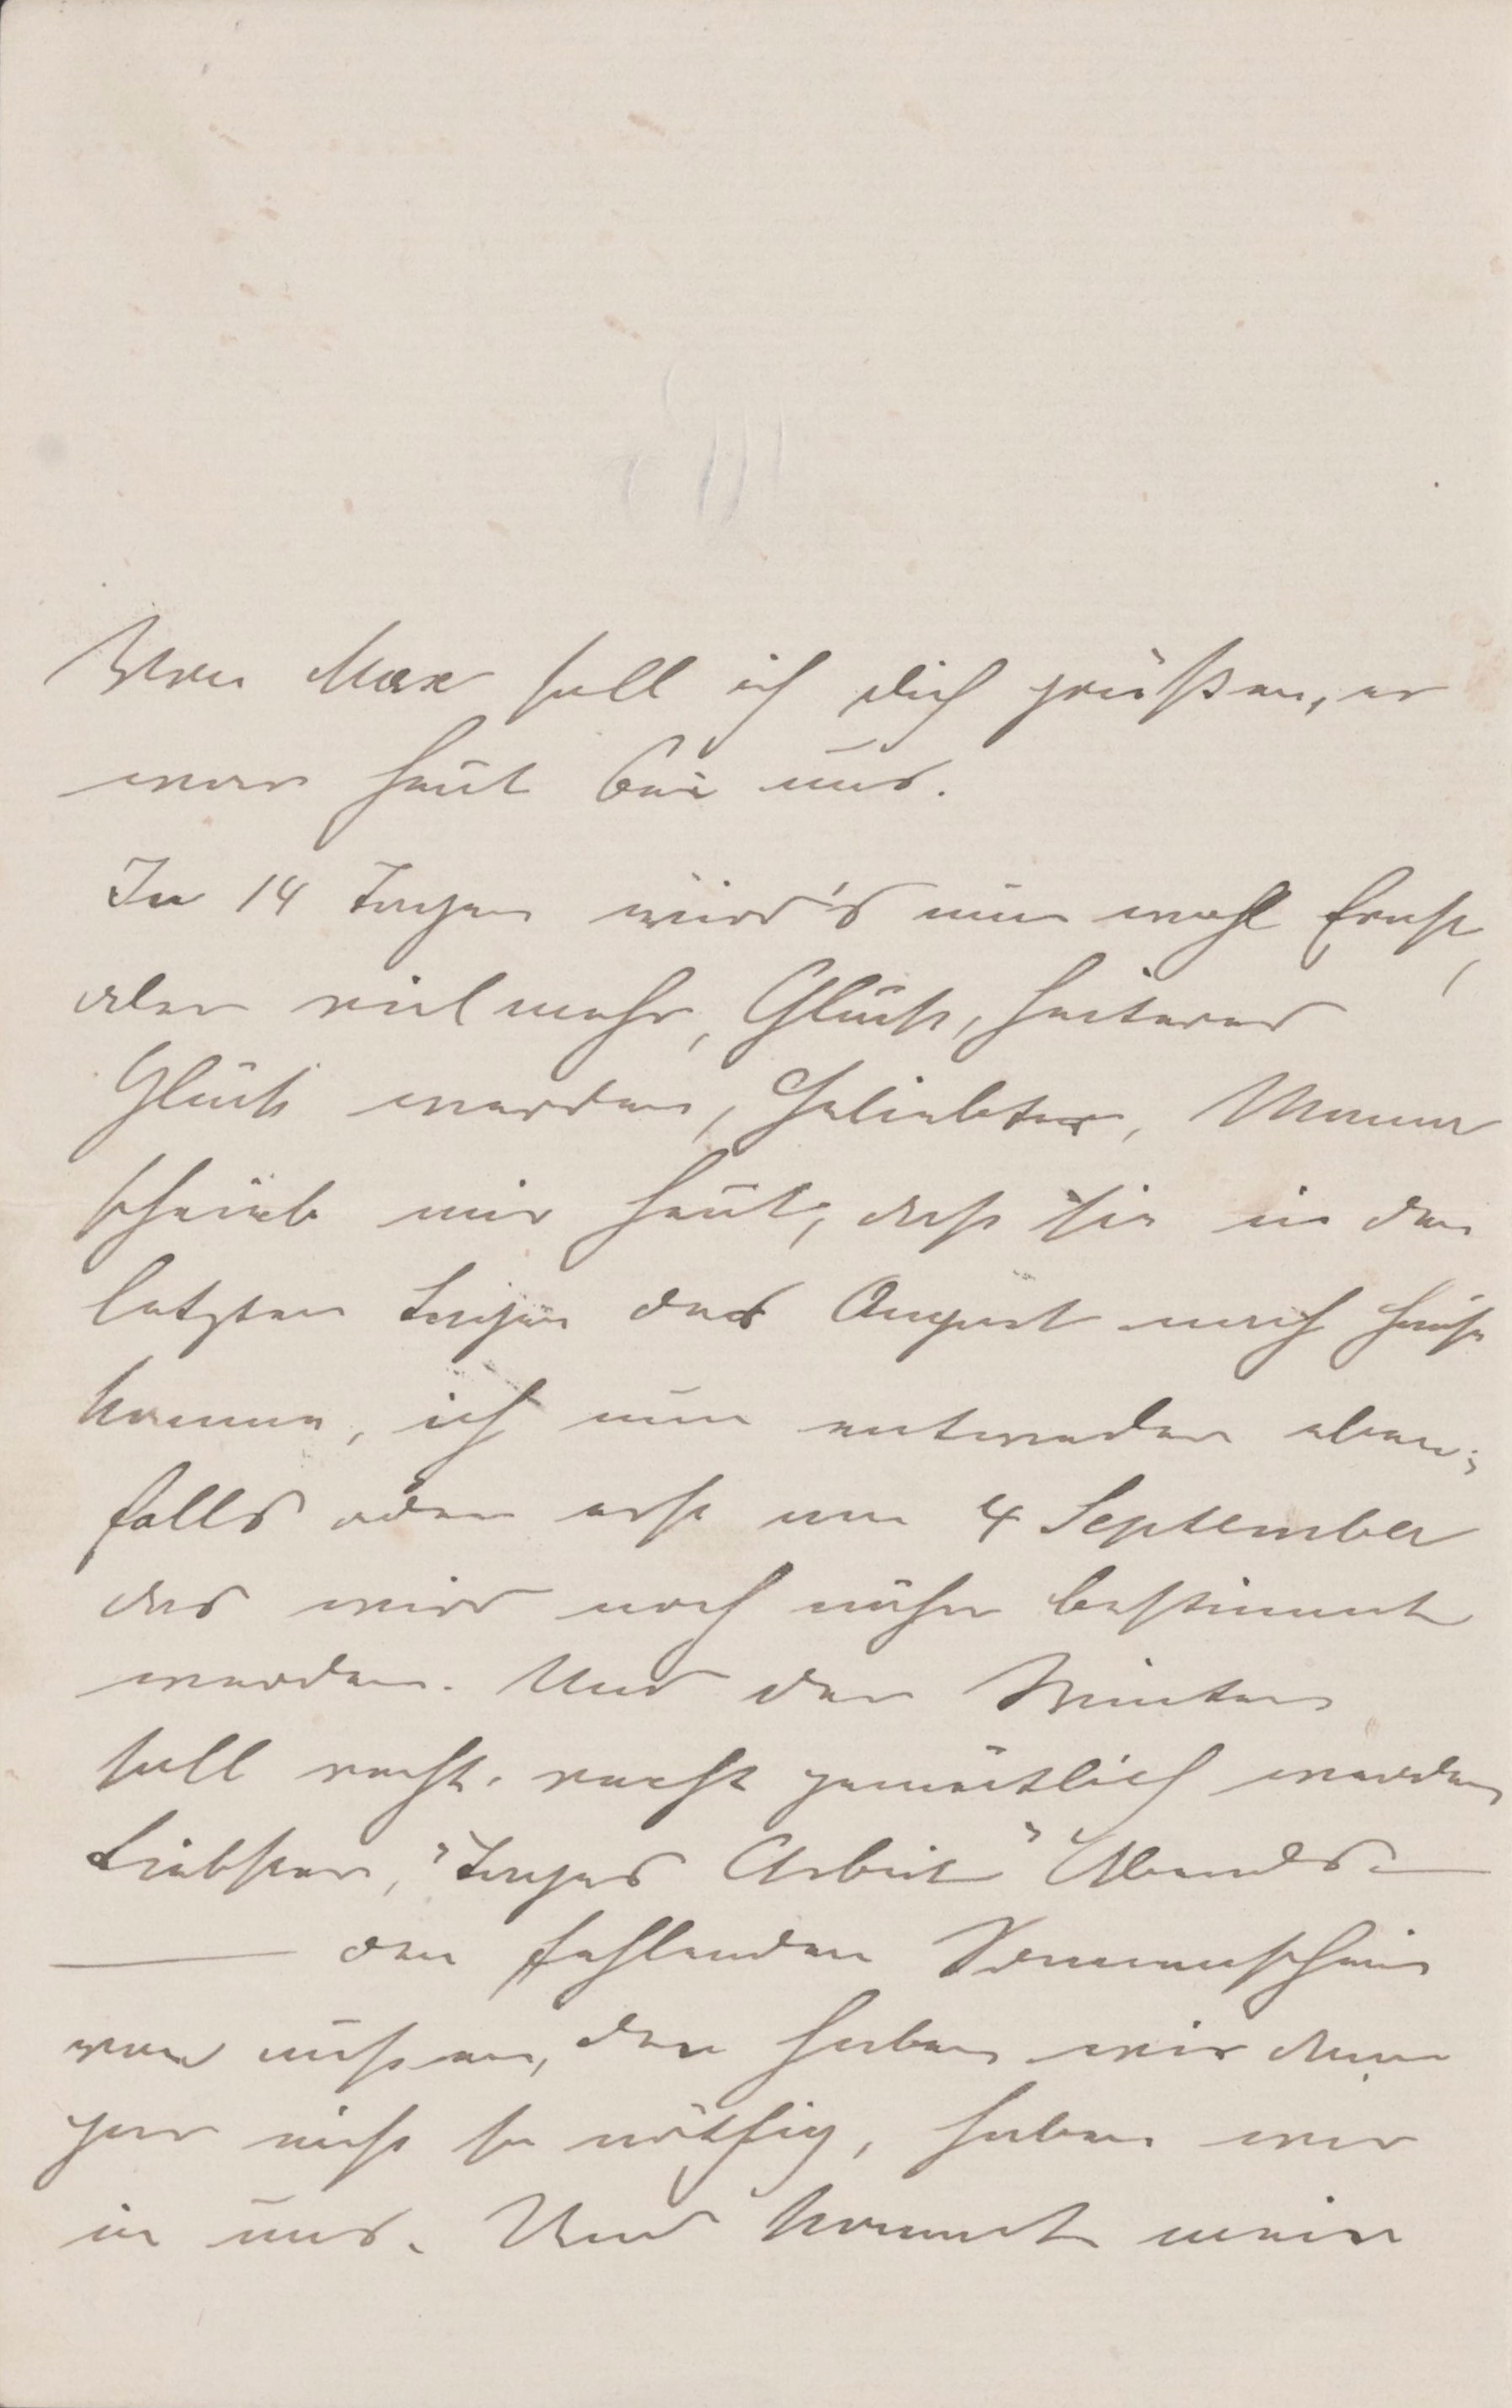 Von Max soll ich dich grüßen, er
war heut bei uns.
In 14 Tagen wird's nun wohl Ernst,
oder vielmehr, Glück, heiteres
Glück werden, Geliebter, Mama
schrieb mir heut, daß sie in den
letzten Tagen des August nach Haus
komme, ich nun entweder eben-
falls oder erst am 4 September
das wird noch näher bestimmt
werden. Und der Winter
soll recht, recht gemütlich werden
Liebster, "Tages Arbeit" Abends —
— den fehlenden Sonnenschein
von außen, den haben wir dann
gar nicht so nöthig, haben wir
in uns. Und kommt mein